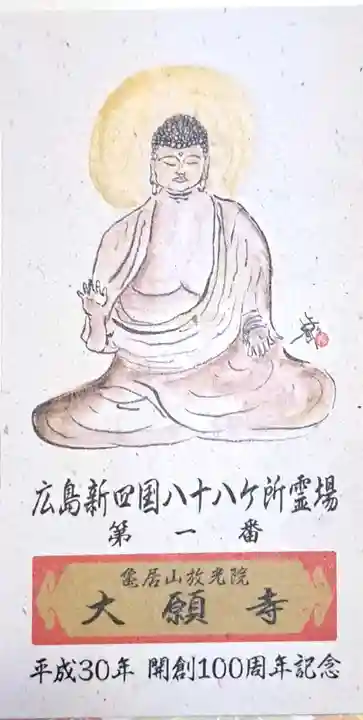 広島新四国八十八ケ所霊場
第一番
亀居山放光院
大願寺
平成30年 開創100周年記念